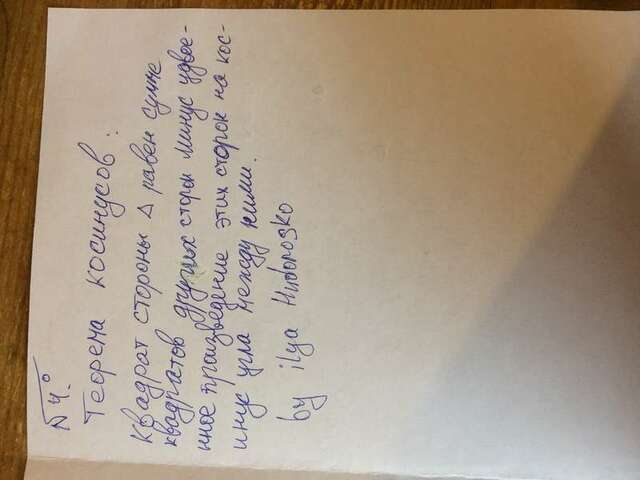 № 4.°
Теорема косинусов.
Квадрат стороны △ равен сумме
квадратов других сторон минус удвое-
нное произведение этих сторон на кос-
инус угла между ними.
by ilya